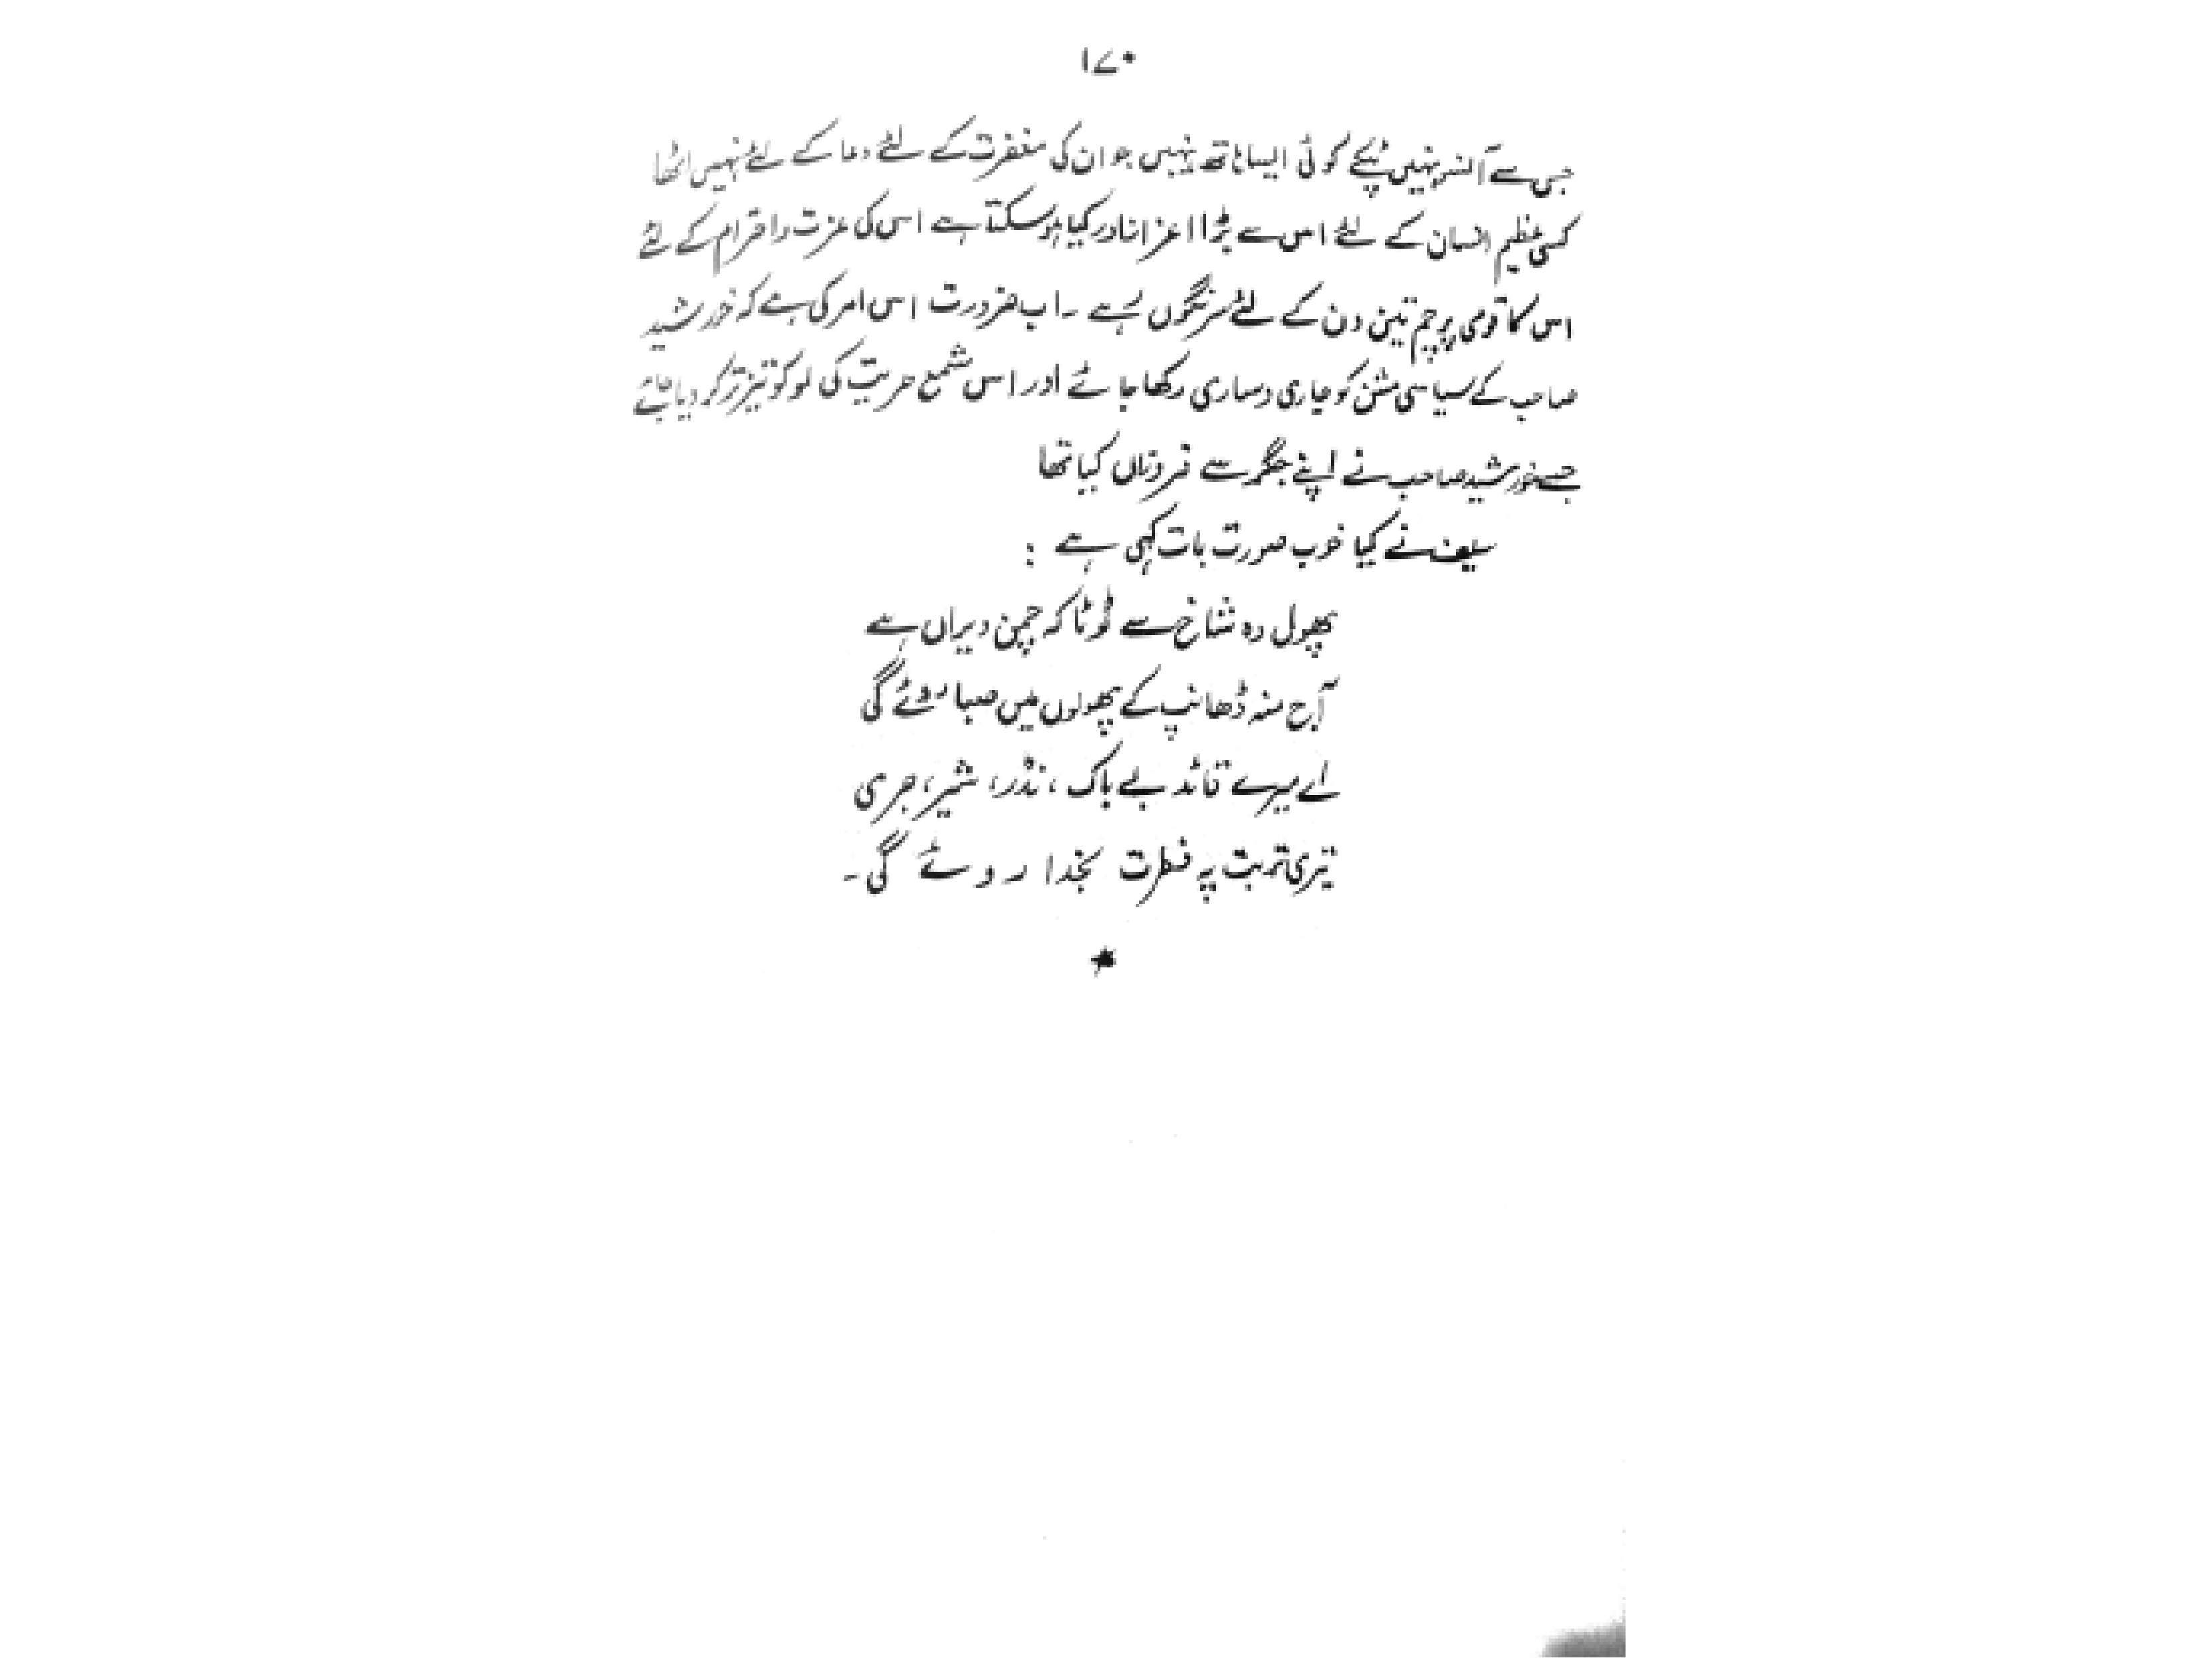 ۱۷۰
جس سے آنسو نہیں ٹپکے کوئی ایسا ہاتھ نہیں جو ان کی مغفرت کے لئے دعا کے لئے نہیں اٹھا
کسی عظیم انسان کے لئے اس سے بڑا اعزاز اور کیا ہو سکتا ہے اس کی عزت و احترام کے لئے
اس کا قومی پرچم تین دن کے لئے سرنگوں رہے ۔ اب ضرورت اس امر کی ہے کہ خورشید
صاحب کے سیاسی مشن کو جاری و ساری رکھا جائے اور اس شمع حریت کی لو کو تیز تر کر دیا جائے
جسے خورشید صاحب نے اپنے جگر سے فروزاں کیا تھا
سیف نے کیا خوب صورت بات کہی ہے :
پھول وہ شاخ سے ٹوٹا کہ چمن ویراں ہے
آج منہ ڈھانپ کے پھولوں میں صبا روئے گی
اے میرے قائد بے باک ، نڈر ، شیر ، جری
تیری تربت پہ فطرت بخدا روئے گی ۔